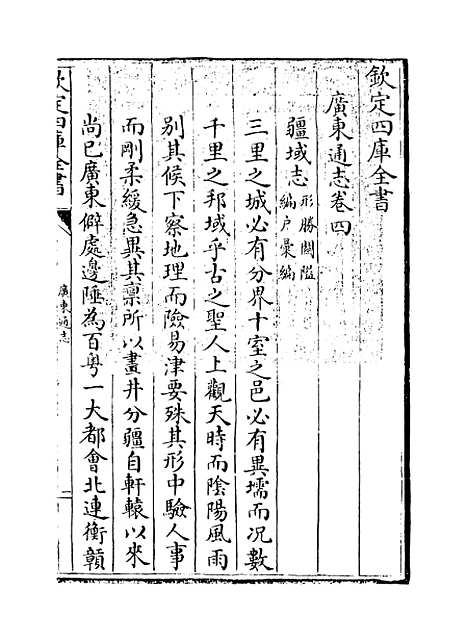 欽定四庫全書
廣東通志卷四
疆域志
形勝關隘
編户彙編
三里之城必有分界十室之邑必有異壖而况數
千里之邦域乎古之聖人上觀天時而陰陽風雨
别其候下察地理而險易津要殊其形中驗人事
而剛柔緩急異其禀所以畫井分疆自軒轅以來
尚已廣東僻處邊陲為百粤一大都會北連衡贛
欽定四庫全書
廣東通志
一